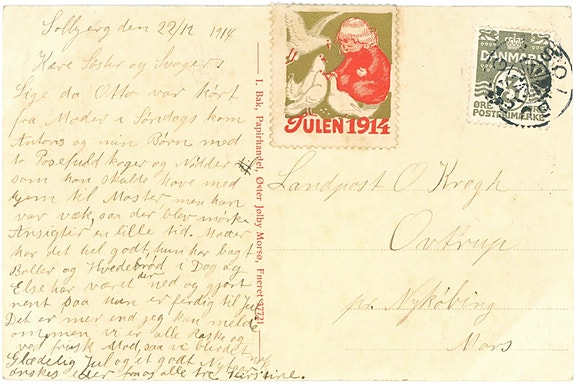 Solbjerg den 22/12 1914
Kære Søster og Svoger
Lige da Otto var kørt
fra Moder i Søndags kom
Antons og min Børn med
to Posefuld kager og Nødder til
som han skulde have med
hjem til Moster men han
var væk, saa der blev mørke
Ansigter en lille tid. Moder
har det hel godt, hun har bagt
Boller og Hvedebrød i Dag og
Else har været der ned og gjort
rent saa hun er færdig til Jul
Det er mer end jeg kan melde
om men vi er alle raske og
ved frisk Mod, saa vi
Glædelig Jul og et godt Nytaar
ønskes eder fra os alle tre
JULEN 1914
DANMARK
5
ØRE
POSTFRIMÆRKE
I. Bak, Papirhandel, Øster Jølby Morsø, Eneret 37721
Landpost O Krogh
Ovtrup
pr. Nykøbing
Mors